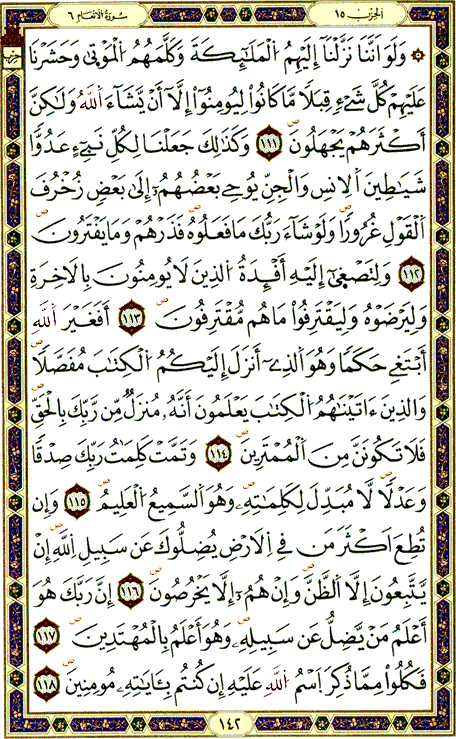 الحزب ١٥
سورة الانعام ٦
حزب
۞ وَلَوَ اَنَّنَا نَزَّلْنَآ إِلَيْهِمُ اُلْمَلَٰٓئِكَةَ وَكَلَّمَهُمُ اُلْمَوْتَىٰ وَحَشَرْنَا
عَلَيْهِمْ كُلَّ شَيْءٖ قِبَلٗا مَّا كَانُواْ لِيُومِنُوٓاْ إِلَّآ أَنْ يَّشَآءَ اَللَّهُ وَلَٰكِنَّ
أَكْثَرَهُمْ يَجْهَلُونَۖ ١١١ وَكَذَٰلِكَ جَعَلْنَا لِكُلِّ نَبِيٓءٍ عَدُوّٗا
شَيَٰطِينَ اَلِانسِ وَالْجِنِّ يُوحِي بَعْضُهُمُۥٓ إِلَىٰ بَعْضٖ زُخْرُفَ
اَلْقَوْلِ غُرُورٗاۖ وَلَوْ شَآءَ رَبُّكَ مَا فَعَلُوهُۖ فَذَرْهُمْ وَمَا يَفْتَرُونَۖ
١١٢ وَلِتَصْغَىٰٓ إِلَيْهِ أَفْـِٕدَةُ اُلذِينَ لَا يُومِنُونَ بِالَاخِرَةِ
وَلِيَرْضَوْهُ وَلِيَقْتَرِفُواْ مَا هُم مُّقْتَرِفُونَۖ ١١٣ أَفَغَيْرَ اَللَّهِ
أَبْتَغِي حَكَمٗا وَهُوَ اَلذِےٓ أَنزَلَ إِلَيْكُمُ اُلْكِتَٰبَ مُفَصَّلٗاۖ
وَالذِينَ ءَاتَيْنَٰهُمُ اُلْكِتَٰبَ يَعْلَمُونَ أَنَّهُۥ مُنزَلٞ مِّن رَّبِّكَ بِالْحَقِّۖ
فَلَا تَكُونَنَّ مِنَ اَلْمُمْتَرِينَۖ ١١٤ وَتَمَّتْ كَلِمَٰتُ رَبِّكَ صِدْقٗا
وَعَدْلٗاۖ لَّا مُبَدِّلَ لِكَلِمَٰتِهِۦۖ وَهُوَ اَلسَّمِيعُ اُلْعَلِيمُۖ ١١٥ وَإِن
تُطِعَ اَكْثَرَ مَن فِے اِلَارْضِ يُضِلُّوكَ عَن سَبِيلِ اِللَّهِۖ إِنْ
يَّتَّبِعُونَ إِلَّا اَلظَّنَّ وَإِنْ هُمُۥٓ إِلَّا يَخْرُصُونَۖ ١١٦ إِنَّ رَبَّكَ هُوَ
أَعْلَمُ مَنْ يَّضِلُّ عَن سَبِيلِهِۦۖ وَهُوَ أَعْلَمُ بِالْمُهْتَدِينَۖ ١١٧
فَكُلُواْ مِمَّا ذُكِرَ اَسْمُ اُللَّهِ عَلَيْهِ إِن كُنتُم بِـَٔايَٰتِهِۦ مُومِنِينَۖ ١١٨
١٤٢